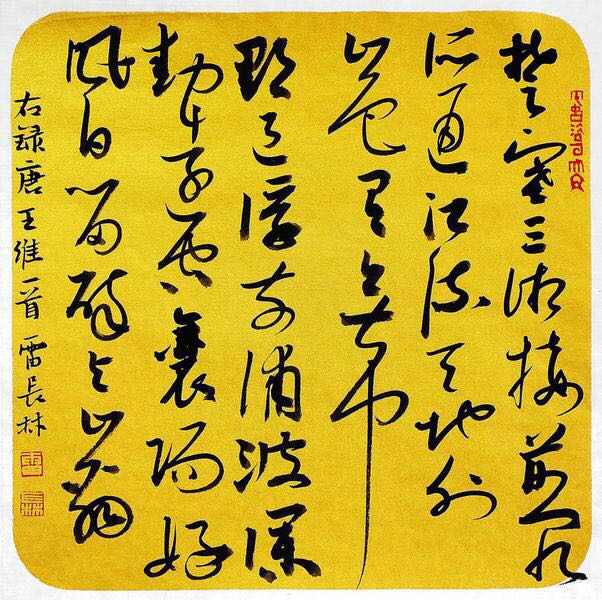 楚塞三湘接荆门九
派通江流天地外
山色有无中
郡邑浮前浦波澜
動远空襄陽好
风日留醉与山翁
右録唐王维一首 雷長林